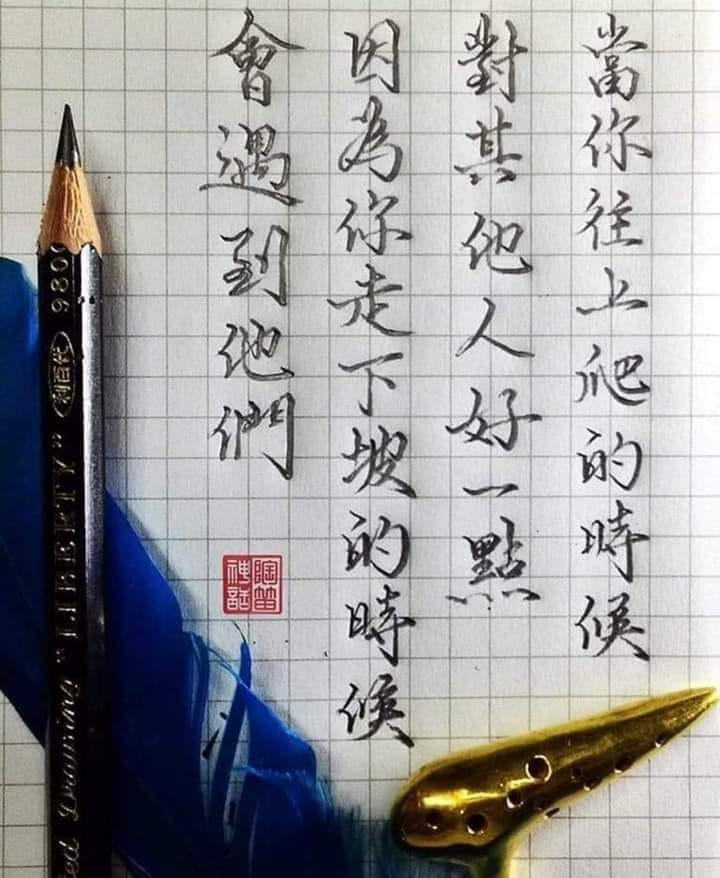 當你往上爬的時候
對其他人好一點
因為你走下坡的時候
會遇到他們
陶笛神話
980
利百代
"LIBERTY"